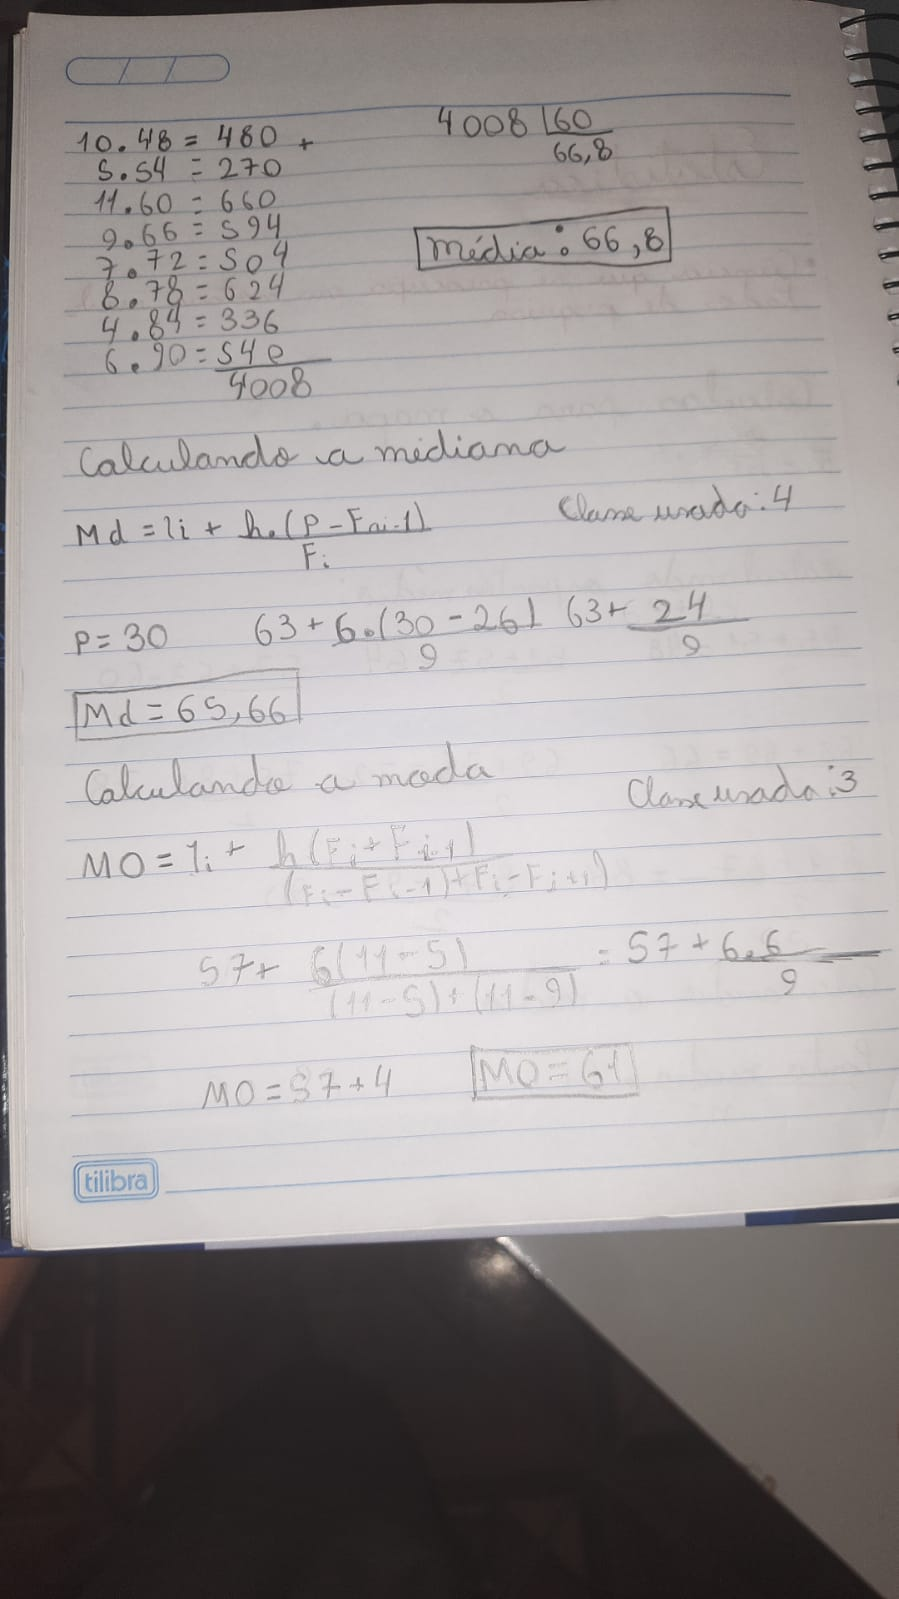 10.48 = 480 +
5.54 = 270
11.60 = 660
9.66 = 594
7.72 = 504
8.78 = 624
4.84 = 336
6.90 = 540
4008
4008 | 60
66,8
Média: 66,8
Calculando a mediana
Md = li + h.(P - Fai-1)
Fi
Classe usada: 4
P = 30 63 + 6.(30 - 26) 63 + 24
9 9
Md = 65,66
Calculando a moda
Classe usada: 3
MO = li + h(Fi + Fi-1)
(Fi - Fi-1) + Fi - Fi+1)
57 + 6(11 - 5) = 57 + 6.6
(11 - 5) + (11 - 9) 9
MO = 57 + 4 MO = 61
tilibra